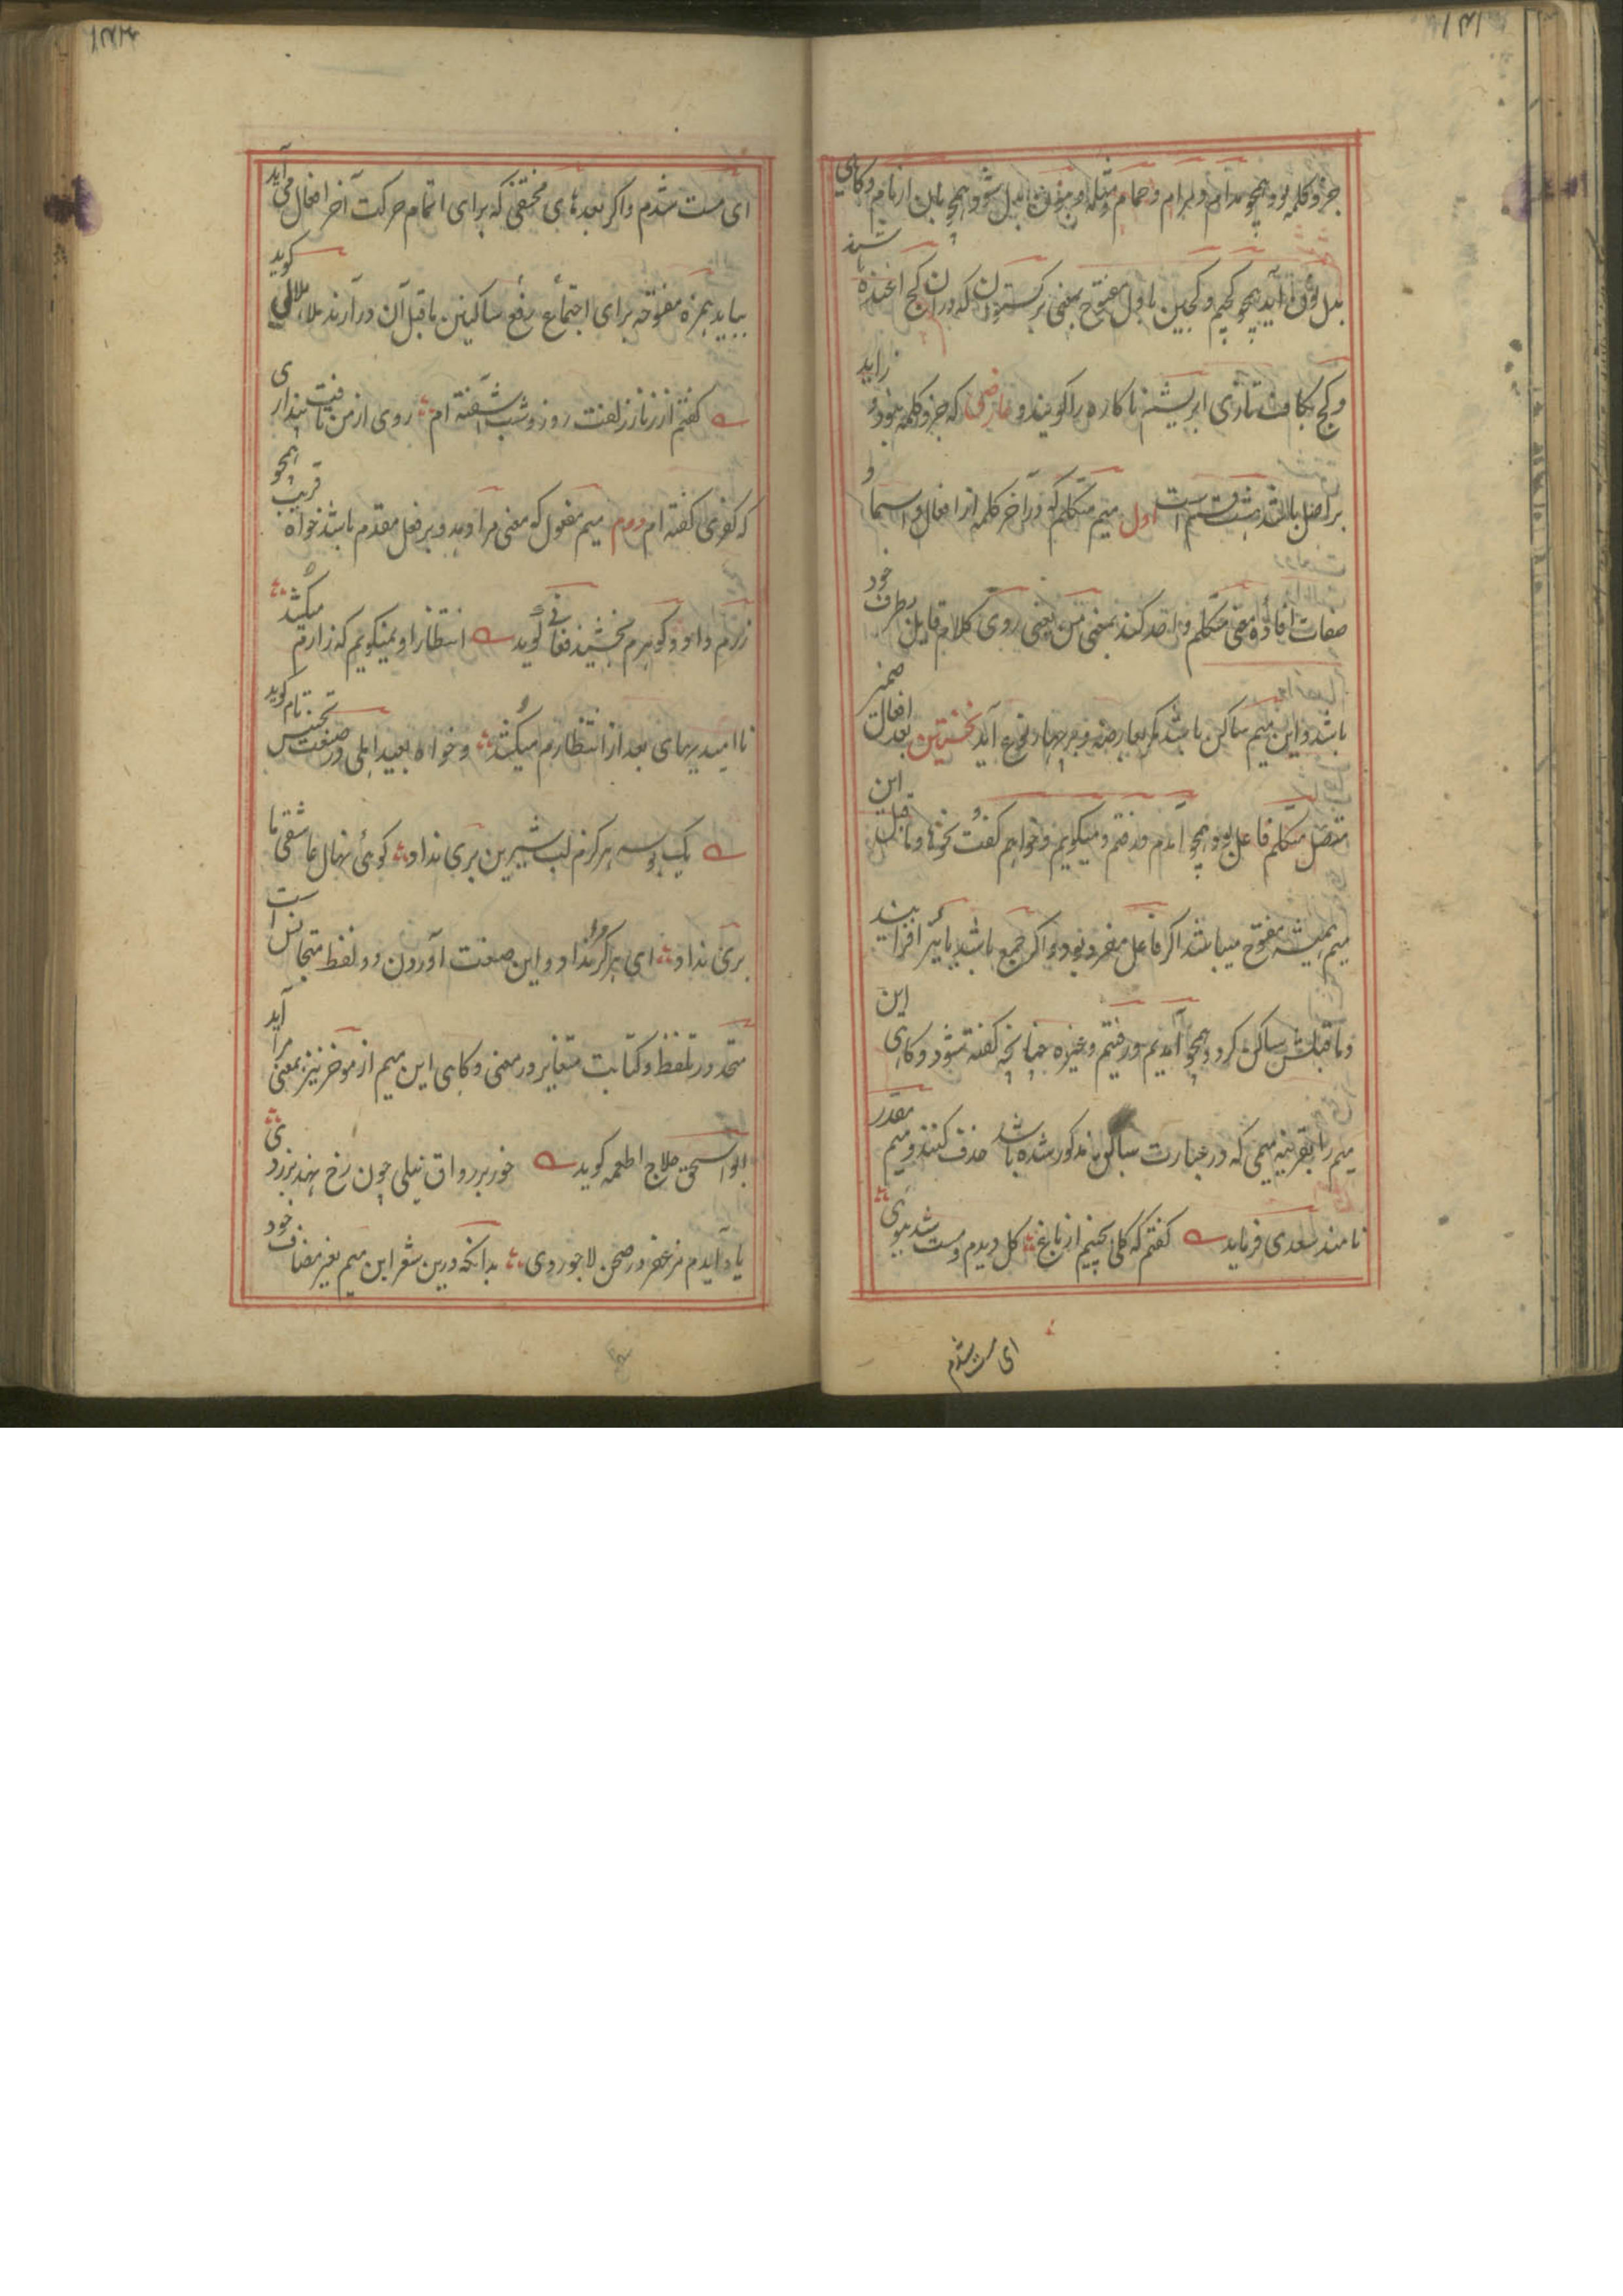 جزو کلمه بود همچو مدام و بهرام و حمام و مثله و بنون بدل شود همچو بان از بام و کاهی
بدل نون آید همچو کجیم و کجین با اول مفتوح بمعنی برکستوان که دران کج اغنده باشند
و کج بکاف تازی ابریشم ناکاره را کویند و عارضی که جزو کلمه نبود و زاید
بر اصل باشد هشت قسم است اول میم متکلم که در آخر کلمه از افعال و اسما و
صفات افاده معنی متکلم واحد کند بمعنی من یعنی روی کلام قایل بطرف خود
باشد و این میم ساکن باشد مکر بعارضه و بر چهار نوع آید نخستین بعد افعال ضمیر
متصل متکلم فاعل بود همچو آمدم و رفتم و میکویم و خواهم کفت و نحوها و ماقبل این
میم همیشه مفتوح میباشد اکر فاعل مفرد بود و اکر جمع باشد یا نیز افزایند
و ماقبلش ساکن کردد همچو آمدیم و رفتیم و غیره چنانچه کفته شود و کاهی این
میم را بقرینه میمی که در عبارت سابق مذکور شده باشد حذف کنند و میم مقدر
نامند سعدی فرماید کفتم که کلی بچینم از باغ کل دیدم و مست شد ببوی
ای مست شدم
ای مست شدم و اکر بعد های مختفی که برای اتمام حرکت آخر افعال می آید
بیاید همزه مفتوحه برای اجتماع رفع ساکنین ماقبل آن در آرند ملا هلالی کوید
کفتم از زلفت روز و شب آشفته ام روی از من تافت پنداری
که کفری کفته ام دوم میم مفعول که معنی مرا دهد و بر فعل مقدم باشد خواه قریب همچو
زرم داد و کوهرم بخشید فغانی کوید انتظار او نمیکویم که زارم میکشد
ناامیدیهای بعد از انتظارم میکشد و خواه بعید اهلی در صنعت تجنیس تام کوید
یک بوسه هرکزم لب شیرین بری نداد کوئی نهال عاشقی ما
بری نداد ای هرکز مرا نداد و این صنعت آوردن دو لفظ متجانس است
متحد در تلفظ و کتابت متغایر در معنی و کاهی این میم از موخر نیز بمعنی مرا آید
ابو اسحق حلاج اطعمه کوید خور بر رواق نیلی چون رخ نهد بزردی
یاد آیدم مزعفر در صحن لاجوردی بدانکه درین شعر این میم بغیر مضاف خود